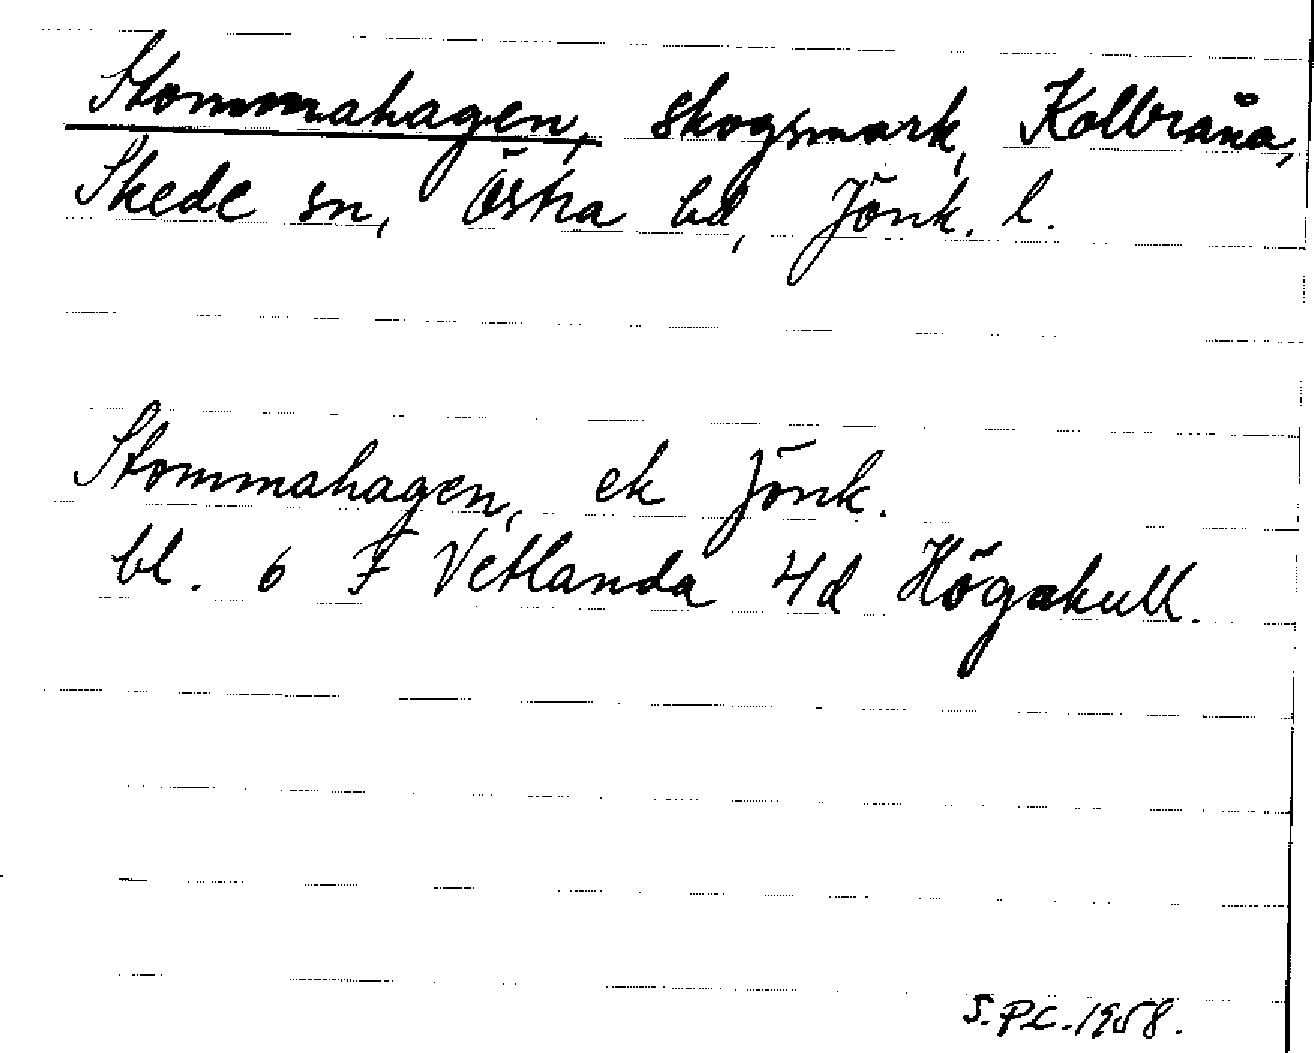 Stommahagen, skogsmark, Kolbräna,
Skede sn, Östra hd, Jönk. l.
Stommahagen, ek Jönk.
bl. 6 F Vetlanda 4d Högakull.
S.P.C. 1958.